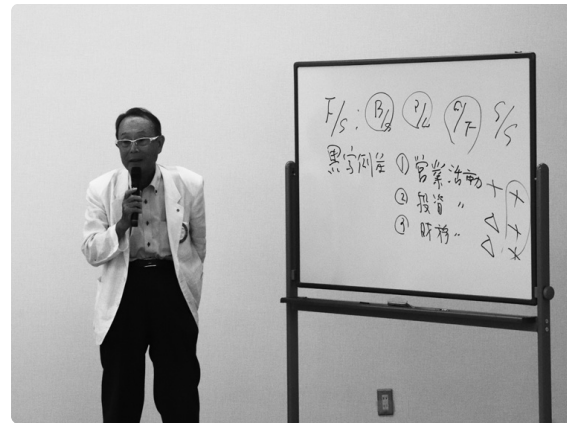 F/S : B/S P/L C/F S/S
黒字倒産 ① 営業活動 + +
② 投資 〃 △ +
③ 財務 〃 △ +